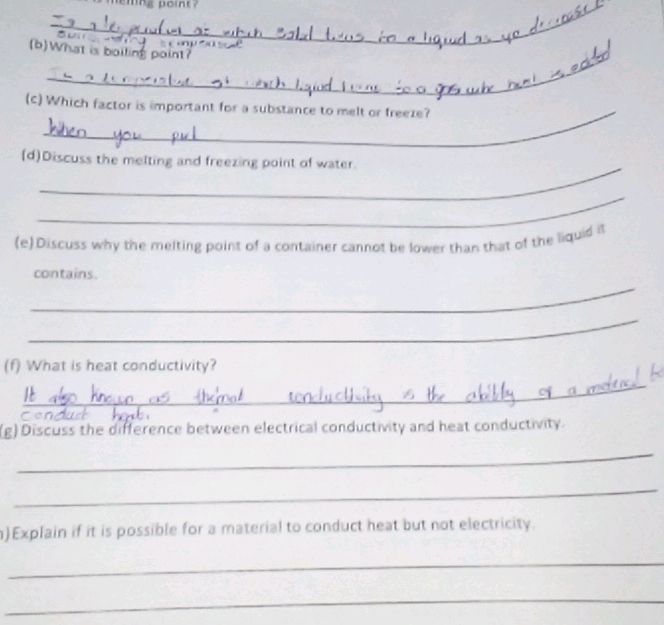 melting point?
Is a temperature at which solid turns to a liquid as you decrease
surrounding temperature
(b) What is boiling point?
Is a temperature at which liquid turns to a gas whe heat is added
(c) Which factor is important for a substance to melt or freeze?
When you put
(d) Discuss the melting and freezing point of water.
(e) Discuss why the melting point of a container cannot be lower than that of the liquid it
contains.
(f) What is heat conductivity?
It also known as thermal conductivity is the ability of a material to
conduct heat.
(g) Discuss the difference between electrical conductivity and heat conductivity.
) Explain if it is possible for a material to conduct heat but not electricity.